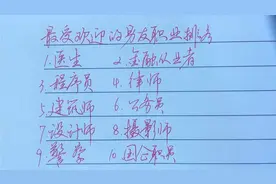 最受欢迎的男友职业排名
1.医生 2.金融从业者
3.程序员 4.律师
5.建筑师 6.公务员
7.设计师 8.摄影师
9.警察 10.国企职员